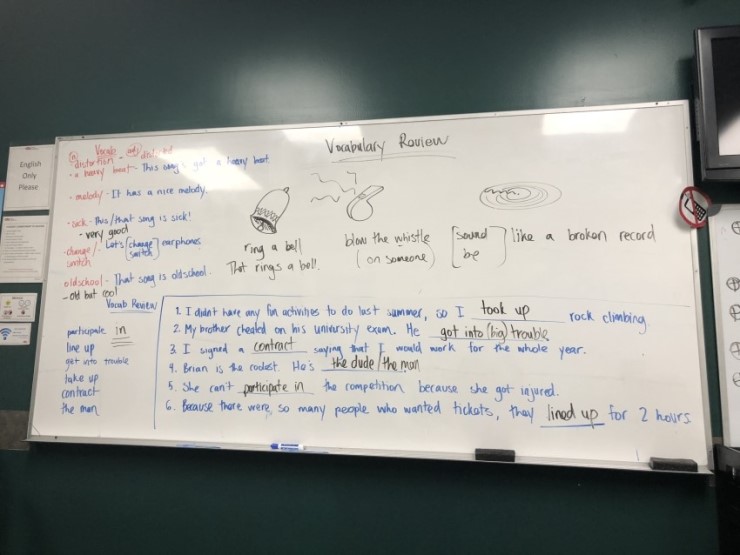 English
Only
Please
Vocab
(n) distortion - (adj) distorted
- a heavy beat - This song's got a heavy beat.
- melody - It has a nice melody.
- sick - This/that song is sick!
- very good
- change/ switch - Let's [change switch] earphones
oldschool - That song is oldschool.
- old but cool
Vocabulary Review
ring a bell
That rings a bell!
blow the whistle
(on someone)
[sound be] like a broken record
Vocab Review
participate in
line up
get into trouble
take up
contract
the man
1. I didnt have any fun activities to do last summer, so I took up rock climbing.
2. My brother cheated on his university exam. He got into (big) trouble.
3. I signed a contract saying that I would work for the whole year.
4. Brian is the coolest. He's the dude/the man
5. She can't participate in the competition because she got injured.
6. Because there were so many people who wanted tickets, they lined up for 2 hours